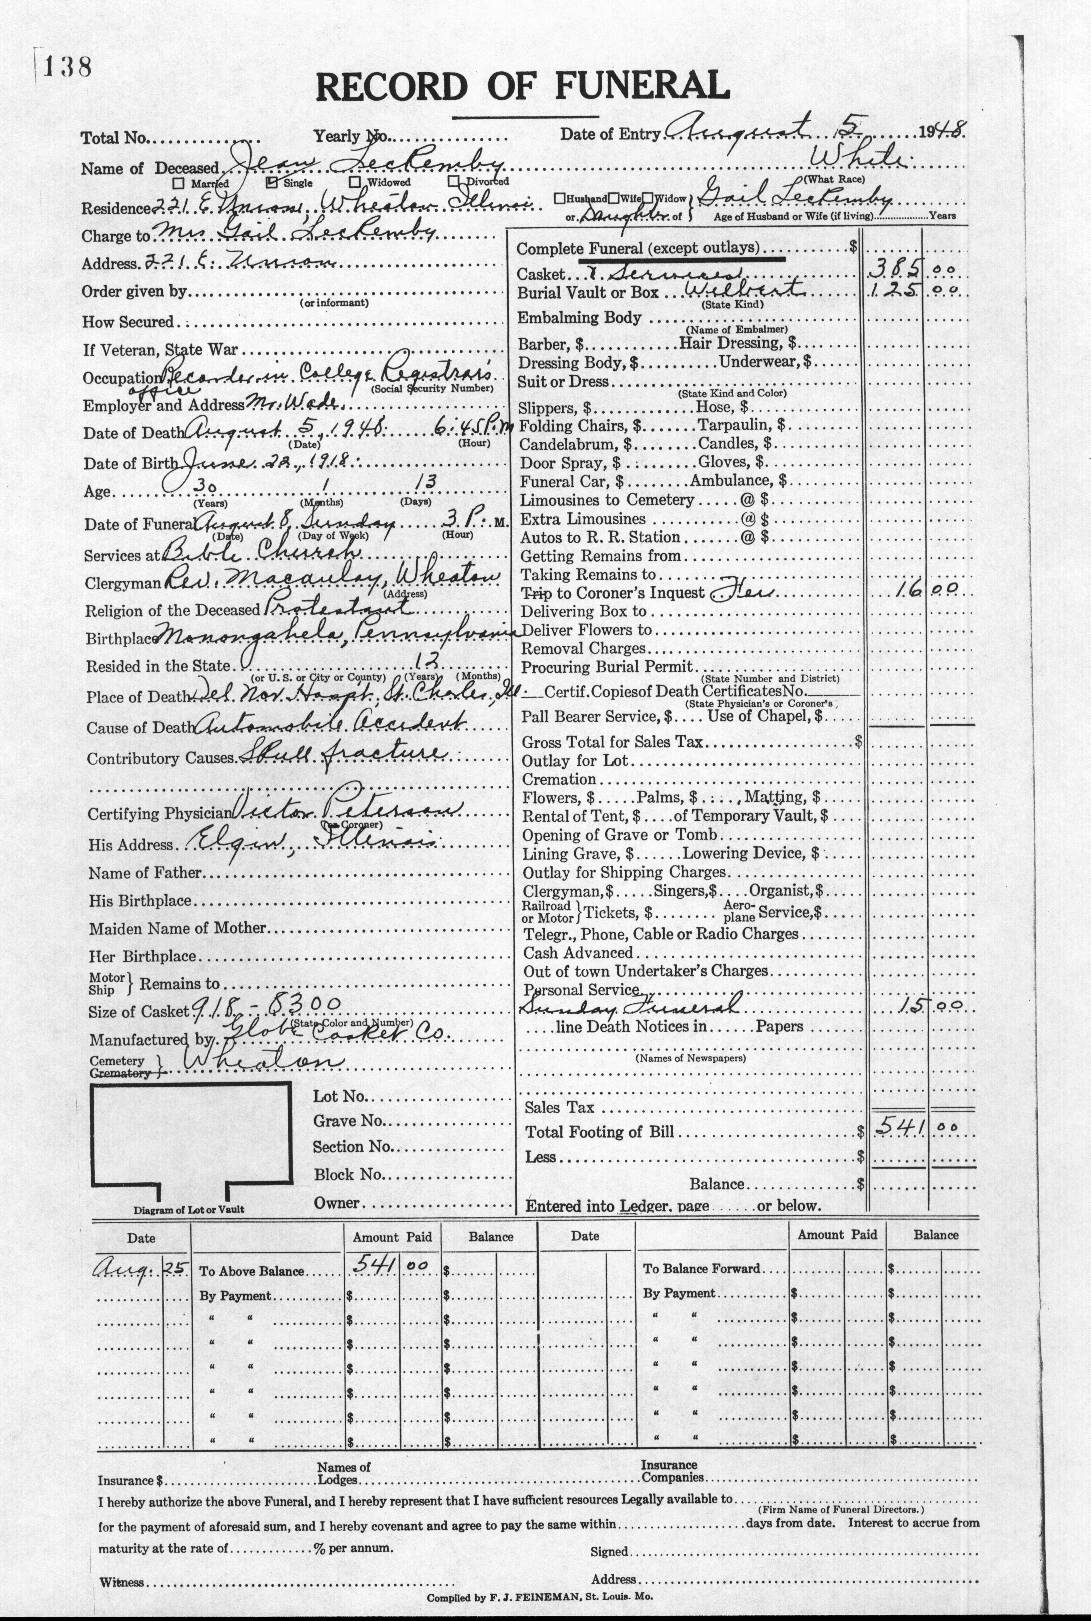 138
RECORD OF FUNERAL
Total No. Yearly No. Date of Entry August 5 1948.
Name of Deceased Jean Leckemby White
(What Race)
Married Single Widowed Divorced
Residence 221 E. Union, Wheaton Illinois Husband Wife Widow or Daughter of Gail Leckemby
Age of Husband or Wife (if living) Years
Charge to Mrs. Gail Leckemby
Address. 221 E. Union
Order given by
(or informant)
How Secured
If Veteran, State War
Occupation Recorder in College Registrar's office
(Social Security Number)
Employer and Address Mr. Wade.
Date of Death August 5, 1948. 6:45 P.M
(Date) (Hour)
Date of Birth June 22, 1918.
Age 30 1 13
(Years) (Months) (Days)
Date of Funeral August 8, Sunday 3 P. M.
(Date) (Day of Week) (Hour)
Services at Bible Church
Clergyman Rev. Macaulay, Wheaton
(Address)
Religion of the Deceased Protestant
Birthplace Monongahela, Pennsylvania
Resided in the State 12
(or U. S. or City or County) (Years) (Months)
Place of Death Del. Nor. Hospt, St. Charles, Ill.
Cause of Death Automobile Accident
Contributory Causes. Skull fracture
Certifying Physician Victor Peterson
(or Coroner)
His Address. Elgin, Illinois
Name of Father
His Birthplace
Maiden Name of Mother
Her Birthplace
Motor Ship } Remains to
Size of Casket 918-8300
(State Color and Number)
Manufactured by Globe Casket Co.
Cemetery Crematory } Wheaton
Lot No.
Grave No.
Section No.
Block No.
Owner
Diagram of Lot or Vault
Complete Funeral (except outlays) $
Casket & Services 385 00
Burial Vault or Box Wilbert 125 00
(State Kind)
Embalming Body
(Name of Embalmer)
Barber, $ Hair Dressing, $
Dressing Body, $ Underwear, $
Suit or Dress
(State Kind and Color)
Slippers, $ Hose, $
Folding Chairs, $ Tarpaulin, $
Candelabrum, $ Candles, $
Door Spray, $ Gloves, $
Funeral Car, $ Ambulance, $
Limousines to Cemetery @ $
Extra Limousines @ $
Autos to R. R. Station @ $
Getting Remains from
Taking Remains to
Trip to Coroner's Inquest Fee 16 00
Delivering Box to
Deliver Flowers to
Removal Charges
Procuring Burial Permit
(State Number and District)
Certif. Copies of Death Certificates No.
(State Physician's or Coroner's)
Pall Bearer Service, $ Use of Chapel, $
Gross Total for Sales Tax $
Outlay for Lot
Cremation
Flowers, $ Palms, $ Matting, $
Rental of Tent, $ of Temporary Vault, $
Opening of Grave or Tomb
Lining Grave, $ Lowering Device, $
Outlay for Shipping Charges
Clergyman, $ Singers, $ Organist, $
Railroad or Motor } Tickets, $ Aeroplane Service, $
Telegr., Phone, Cable or Radio Charges
Cash Advanced
Out of town Undertaker's Charges
Personal Service
Sunday Funeral 15 00
line Death Notices in Papers
(Names of Newspapers)
Sales Tax
Total Footing of Bill $ 541 00
Less $
Balance $
Entered into Ledger, page or below.
Date Amount Paid Balance Date Amount Paid Balance
Aug. 25 To Above Balance 541 00 $ To Balance Forward $
By Payment $ $ By Payment $ $
" " $ $ " " $ $
" " $ $ " " $ $
" " $ $ " " $ $
" " $ $ " " $ $
" " $ $ " " $ $
" " $ $ " " $ $
Insurance $ Names of Lodges Insurance Companies
I hereby authorize the above Funeral, and I hereby represent that I have sufficient resources Legally available to
(Firm Name of Funeral Directors.)
for the payment of aforesaid sum, and I hereby covenant and agree to pay the same within days from date. Interest to accrue from
maturity at the rate of % per annum. Signed
Witness Address
Compiled by F. J. FEINEMAN, St. Louis. Mo.